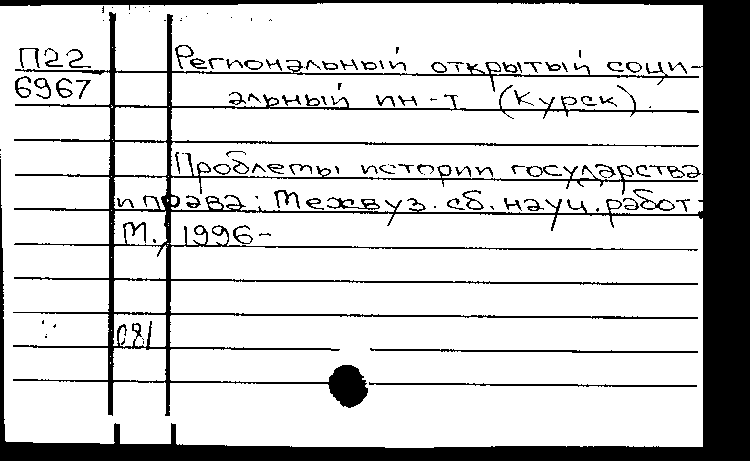 П22 Региональный открытый соци-
6967 альный ин-т (Курск).
Проблемы истории государства
и права: Межвуз. сб. науч. работ.
М., 1996-
081